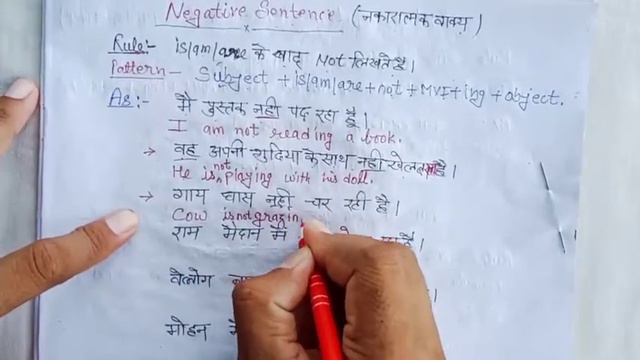 Negative Sentence (नकारात्मक वाक्य)
Rule:- is/am/are के बाद Not लिखते है।
Pattern - Subject + is/am/are + not + MVI + ing + object.
As:- मै पुस्तक नही पढ़ रहा हूँ।
I am not reading a book.
→ वह अपनी गुडिया के साथ नही खेल रहा है।
He is not playing with his doll.
→ गाय घास नही चर रही है।
Cow is not grazin
राम मैदान में है।
वेलोग
मोहन